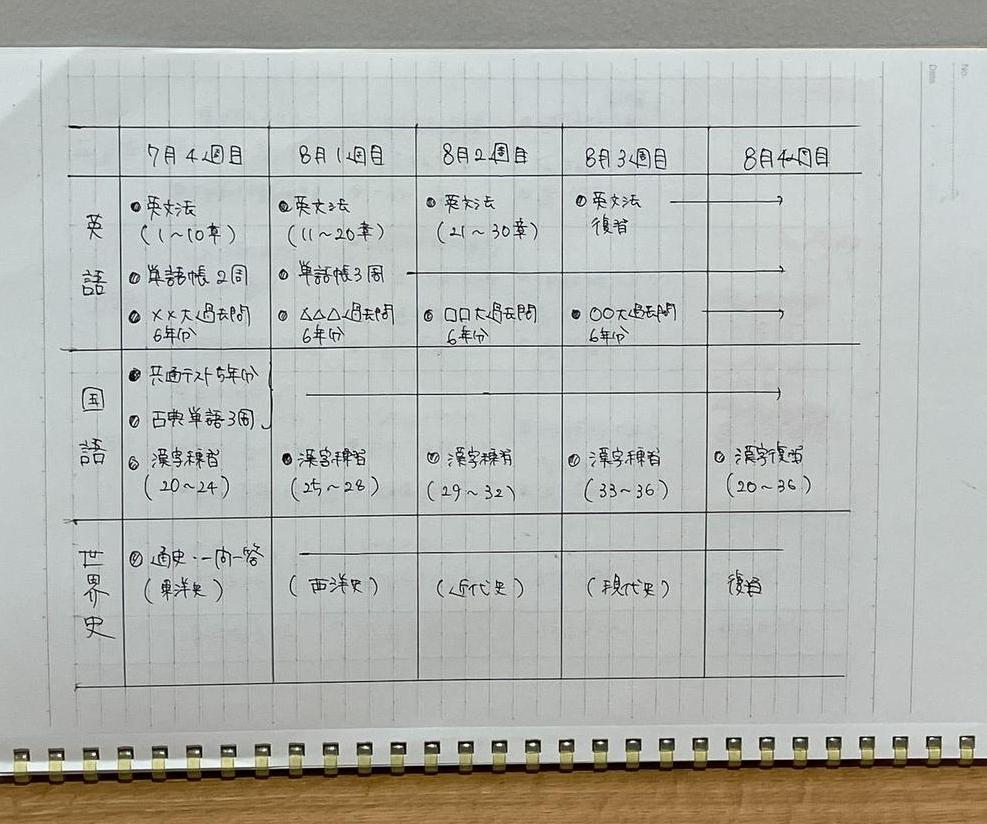 No.
Date
7月4週目 8月1週目 8月2週目 8月3週目 8月4週目
英語
●英文法 ●英文法 ●英文法 ●英文法 →
(1～10章) (11～20章) (21～30章) 復習
●単語帳2周 ●単語帳3周 →
●××大過去問 ●△△△過去問 ●□□大過去問 ●○○大過去問 →
6年分 6年分 6年分 6年分
国語
●共通テスト5年分 →
●古典単語3周
●漢字練習 ●漢字練習 ●漢字練習 ●漢字練習 ●漢字復習
(20～24) (25～28) (29～32) (33～36) (20～36)
世界史
●通史・一問一答
(東洋史) (西洋史) (近代史) (現代史) 復習